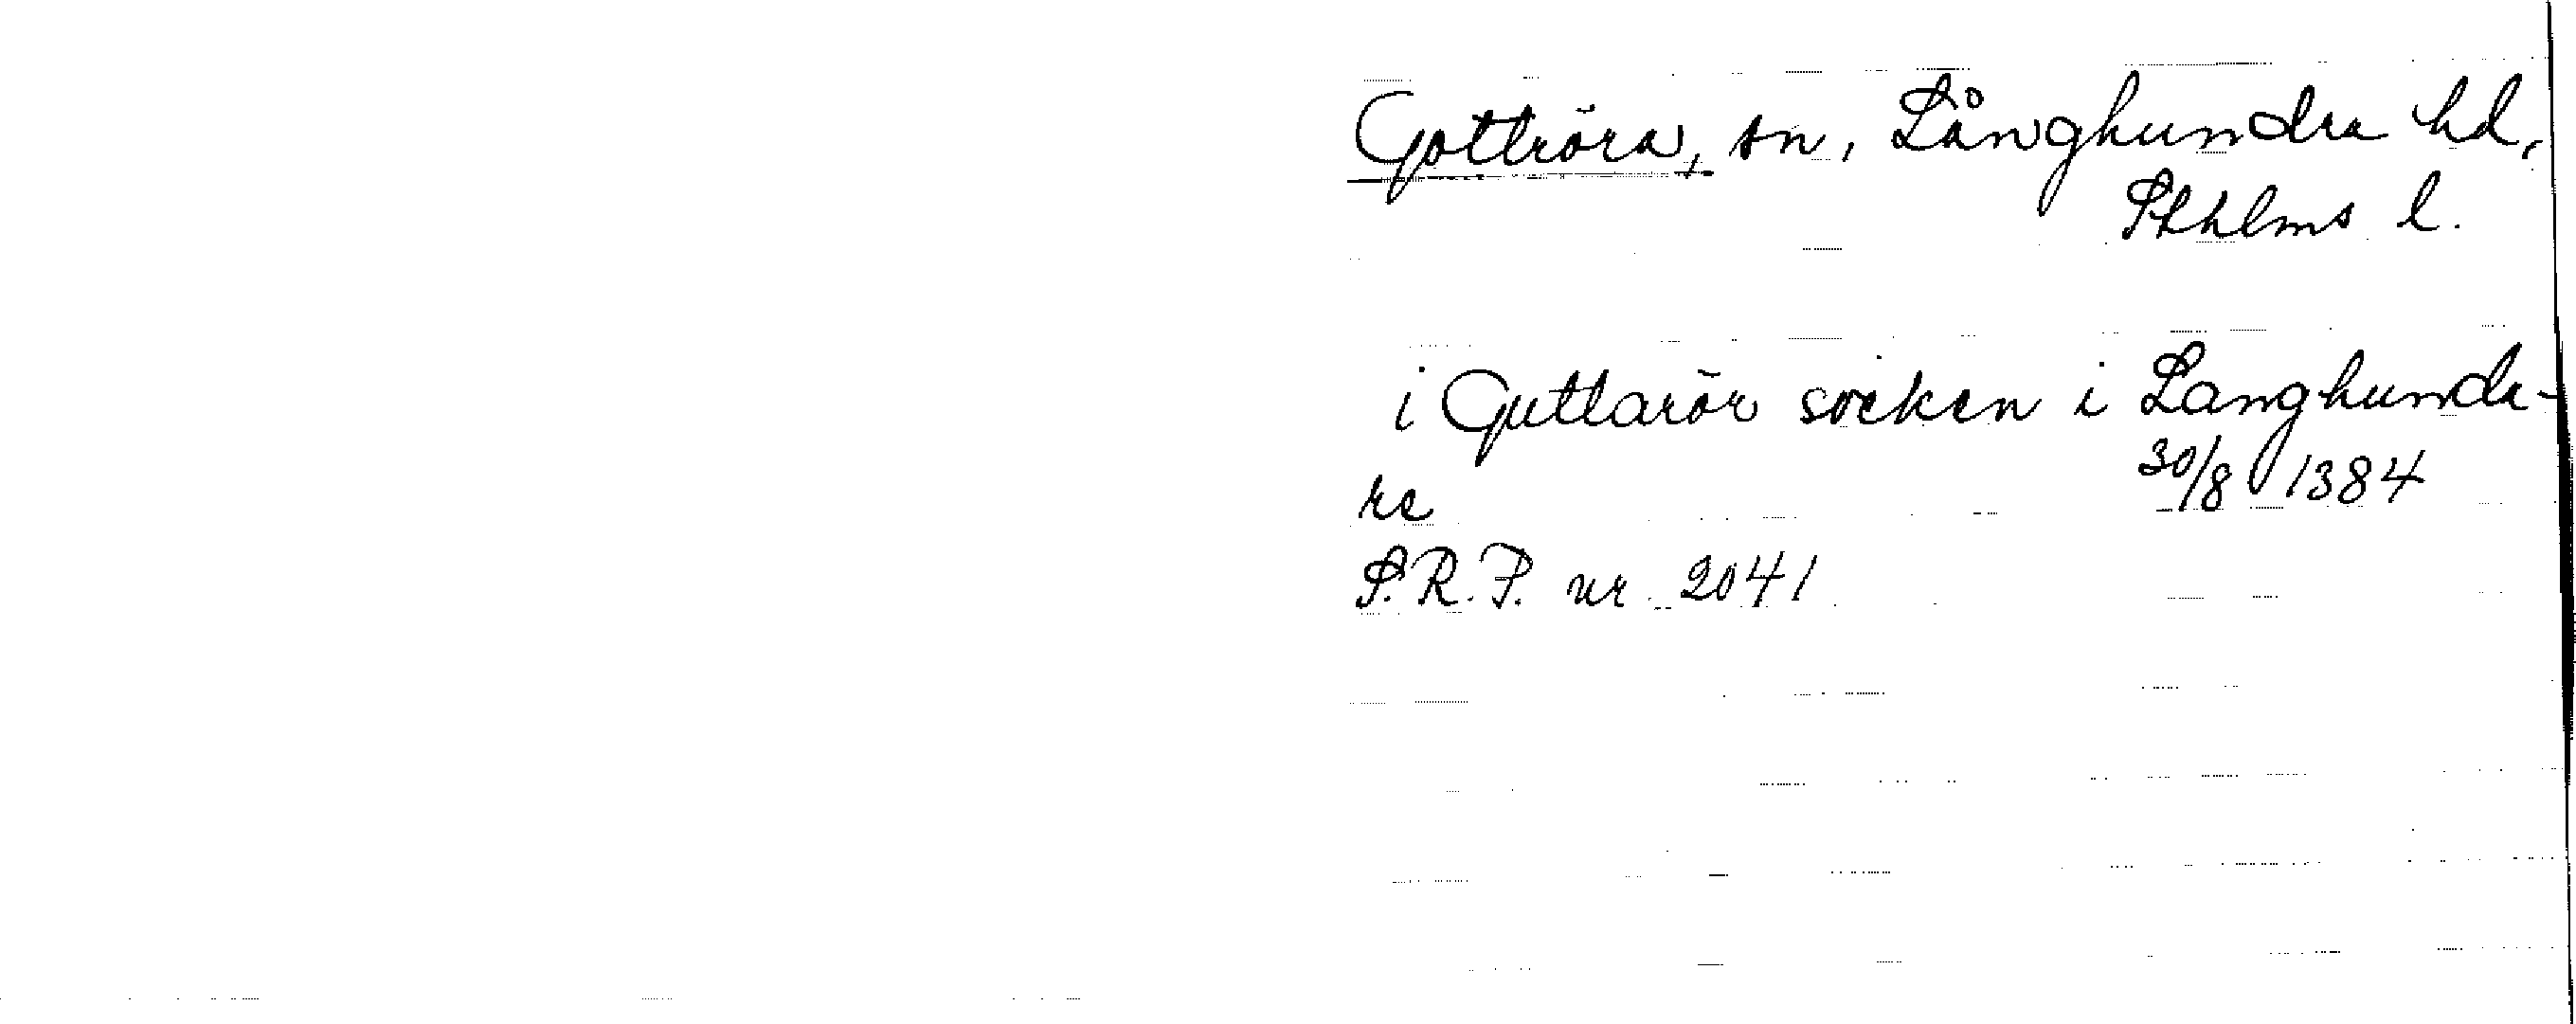 Gottröra, sn, Långhundra hd,
Sthlms l.
i Guttarör socken i Langhunda-
re 30/8 1384
S.R.P. nr 2041